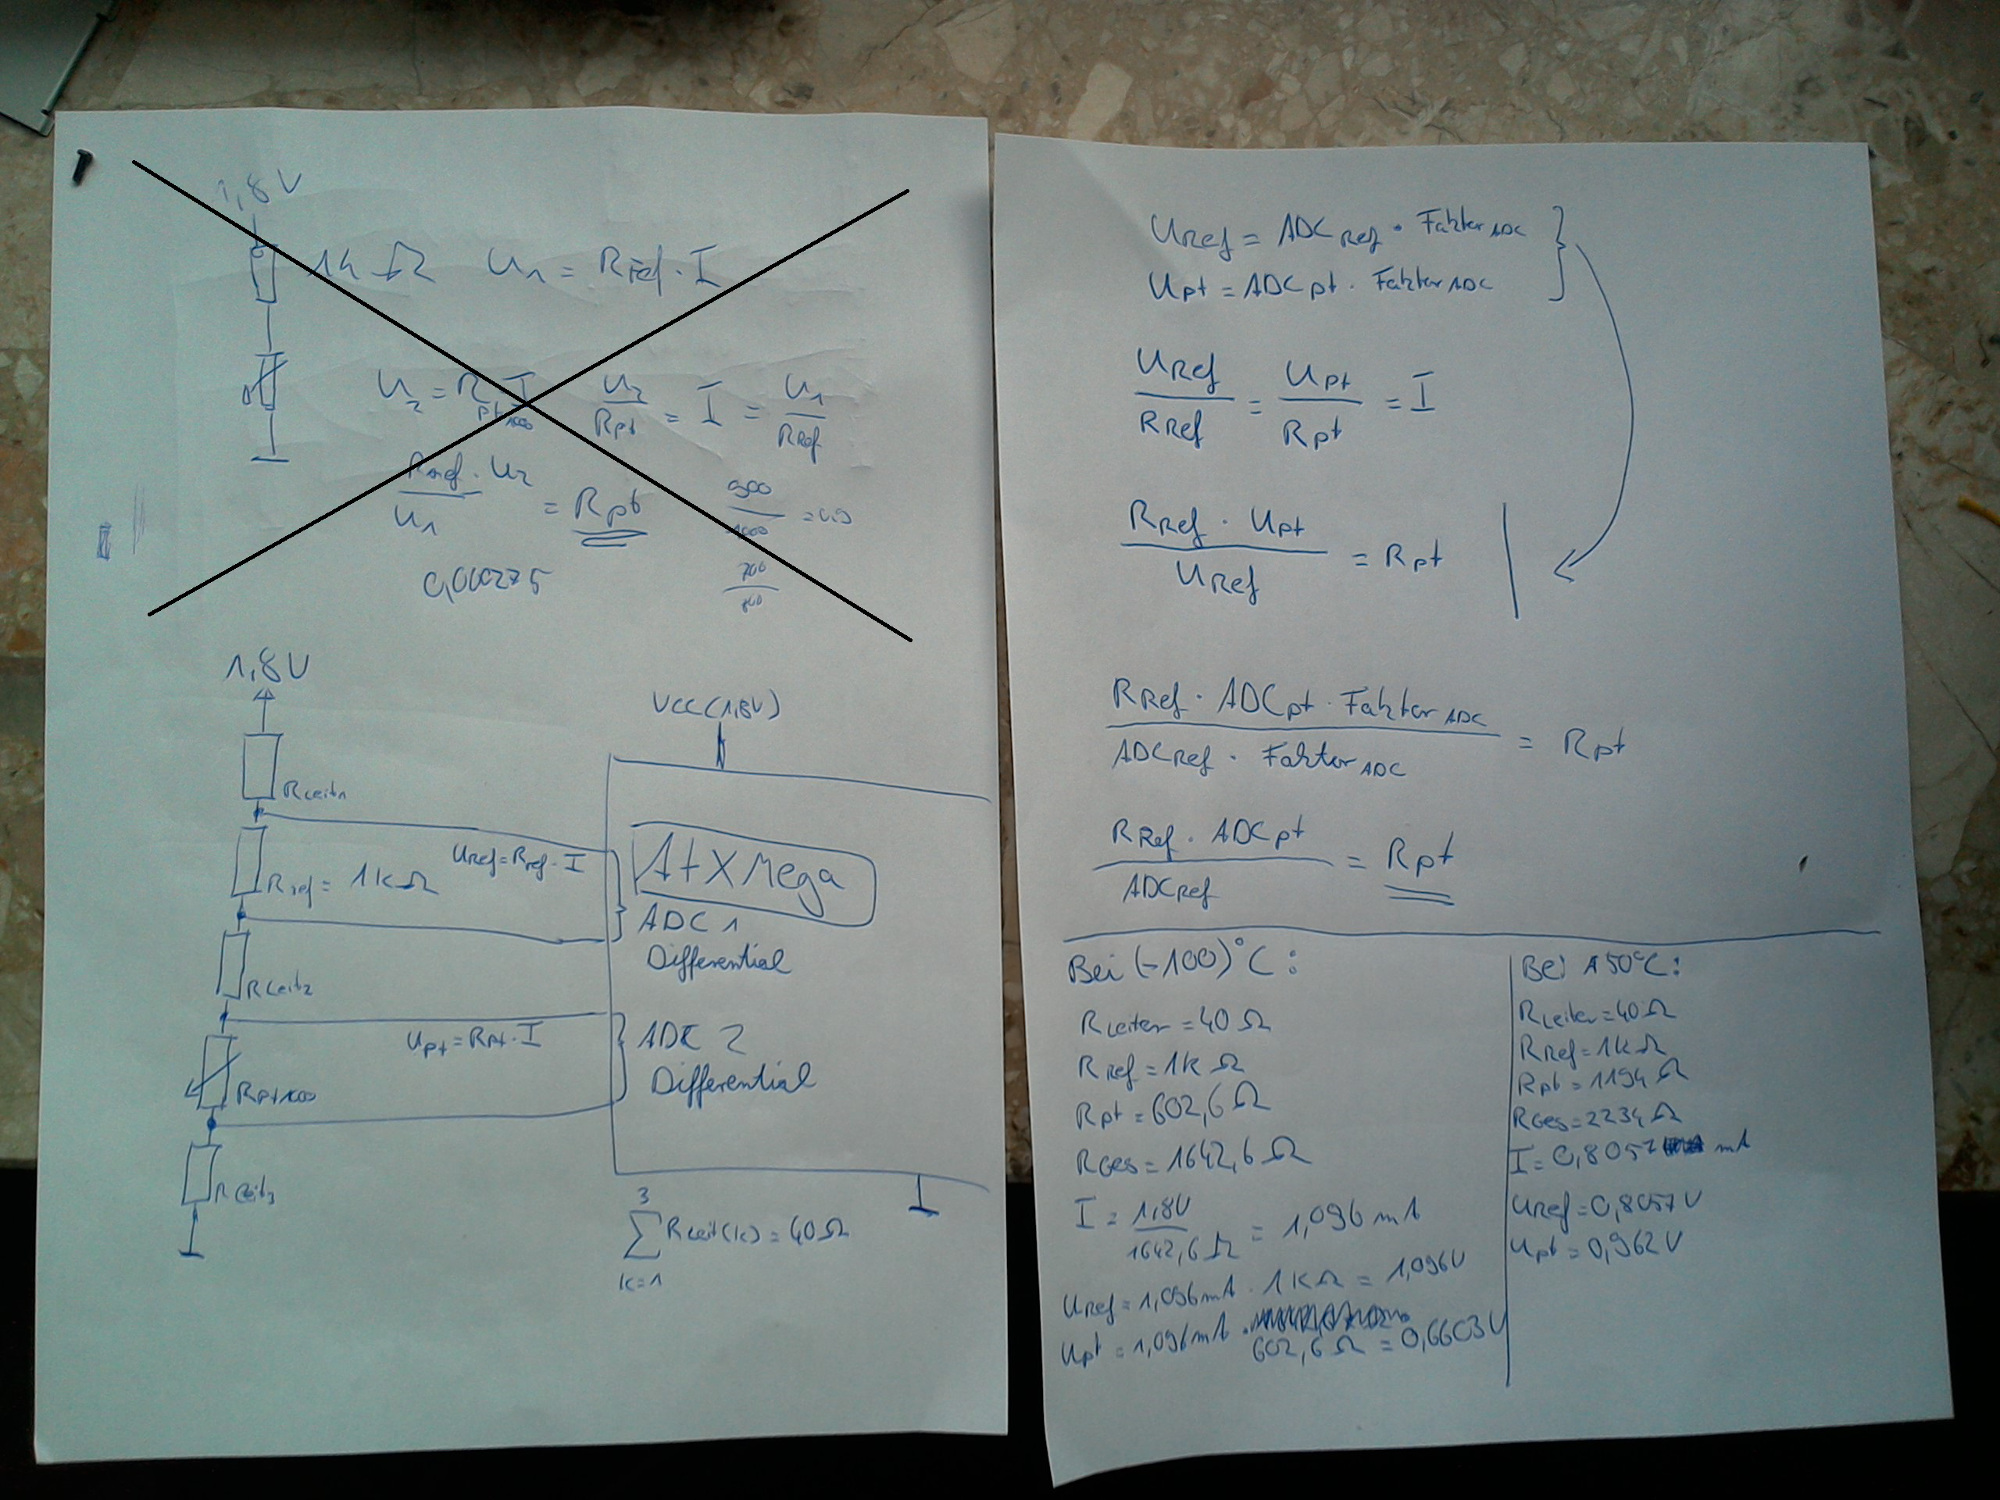 1,8V
1k Ω U₁ = Rref · I
U₂ = R Pt1000 · I U₂/Rpt = I = U₁/RRef
Rref · U₂ / U₁ = Rpt
900/1000 = 0,9
0,000275
700/800
1,8V
VCC(1,8V)
RLeit1
Uref = Rref · I
AtXMega
Rref = 1kΩ
ADC 1
Differential
RLeit2
Upt = Rpt · I
ADC 2
Differential
RPt1000
RLeit3
3
∑ RLeit(k) = 40Ω
k=1
URef = ADCRef · FaktorADC
Upt = ADCpt · FaktorADC
URef/RRef = Upt/Rpt = I
RRef · Upt / URef = Rpt
RRef · ADCpt · FaktorADC / ADCRef · FaktorADC = Rpt
RRef · ADCpt / ADCRef = Rpt
Bei (-100)°C:
RLeiter = 40 Ω
RRef = 1k Ω
Rpt = 602,6 Ω
RGes = 1642,6 Ω
I = 1,8V / 1642,6 Ω = 1,096 mA
URef = 1,096mA · 1kΩ = 1,096V
Upt = 1,096mA · 602,6 Ω = 0,6603V
Bei 150°C:
RLeiter = 40 Ω
RRef = 1k Ω
Rpt = 1194 Ω
RGes = 2234 Ω
I = 0,8057 mA
URef = 0,8057V
Upt = 0,962V